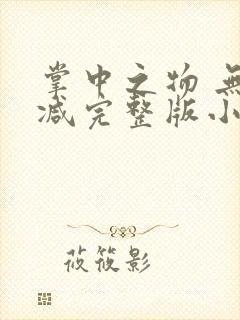 掌中之物 無
减完整版小
莜筱影